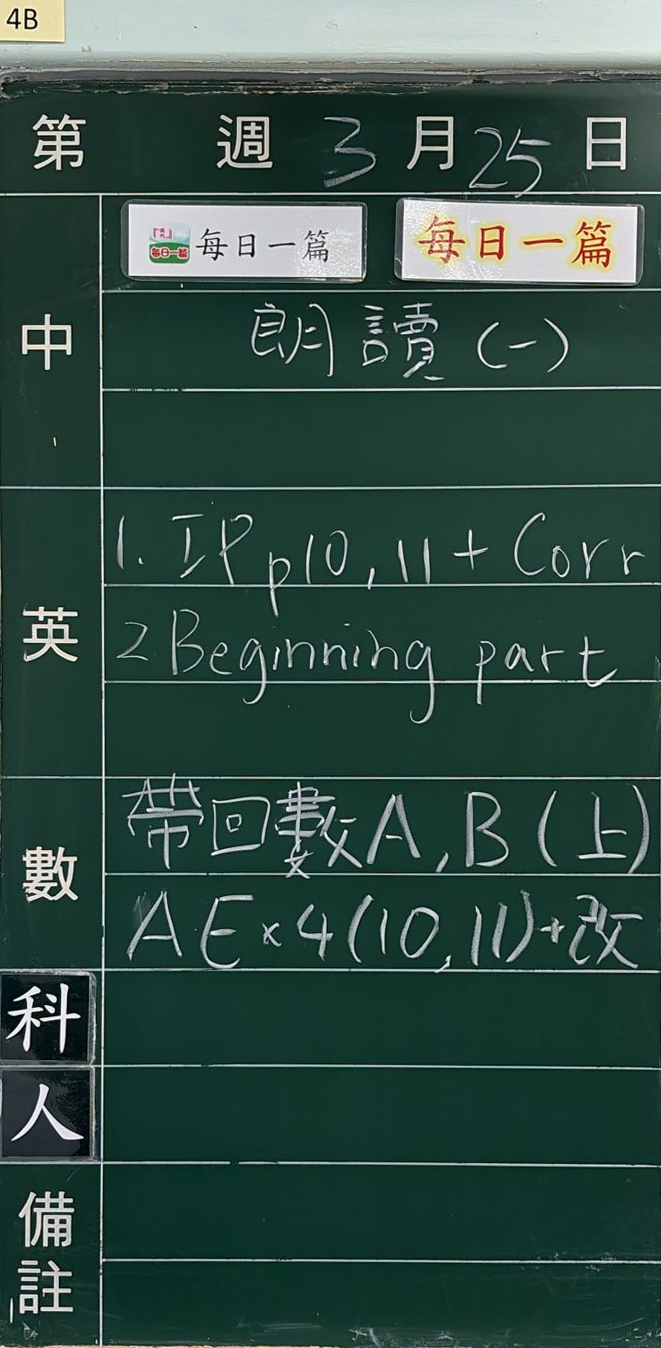 4B
第 週 3 月 25 日
每日一篇 每日一篇 每日一篇
中
朗讀(一)
英
1. IP p10, 11 + Corr
2 Beginning part
數
帶回數A, B (上)
AE × 4 (10, 11)+改
科
人
備註